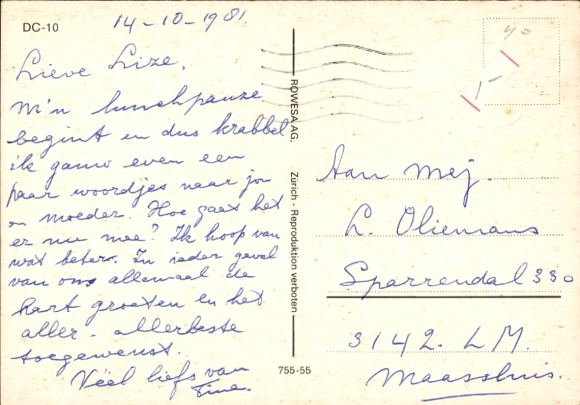 DC-10
14-10-1981
Lieve Lize,
M'n lunchpauze
begint en dus krabbel
ik gauw even een
paar woordjes naar jou
en moeder. Hoe gaat het
er nu mee? Ik hoop van
wat beters. In ieder geval
van ons allemaal de
hart. groeten en het
aller-allerbeste
toegewenst.
Véél liefs van
Tine.
ROWESA AG. Zürich - Reproduktion verboten
755-55
Aan Mej.
L. Oliemans
Sparrendal 330
3142 LM.
Maassluis.